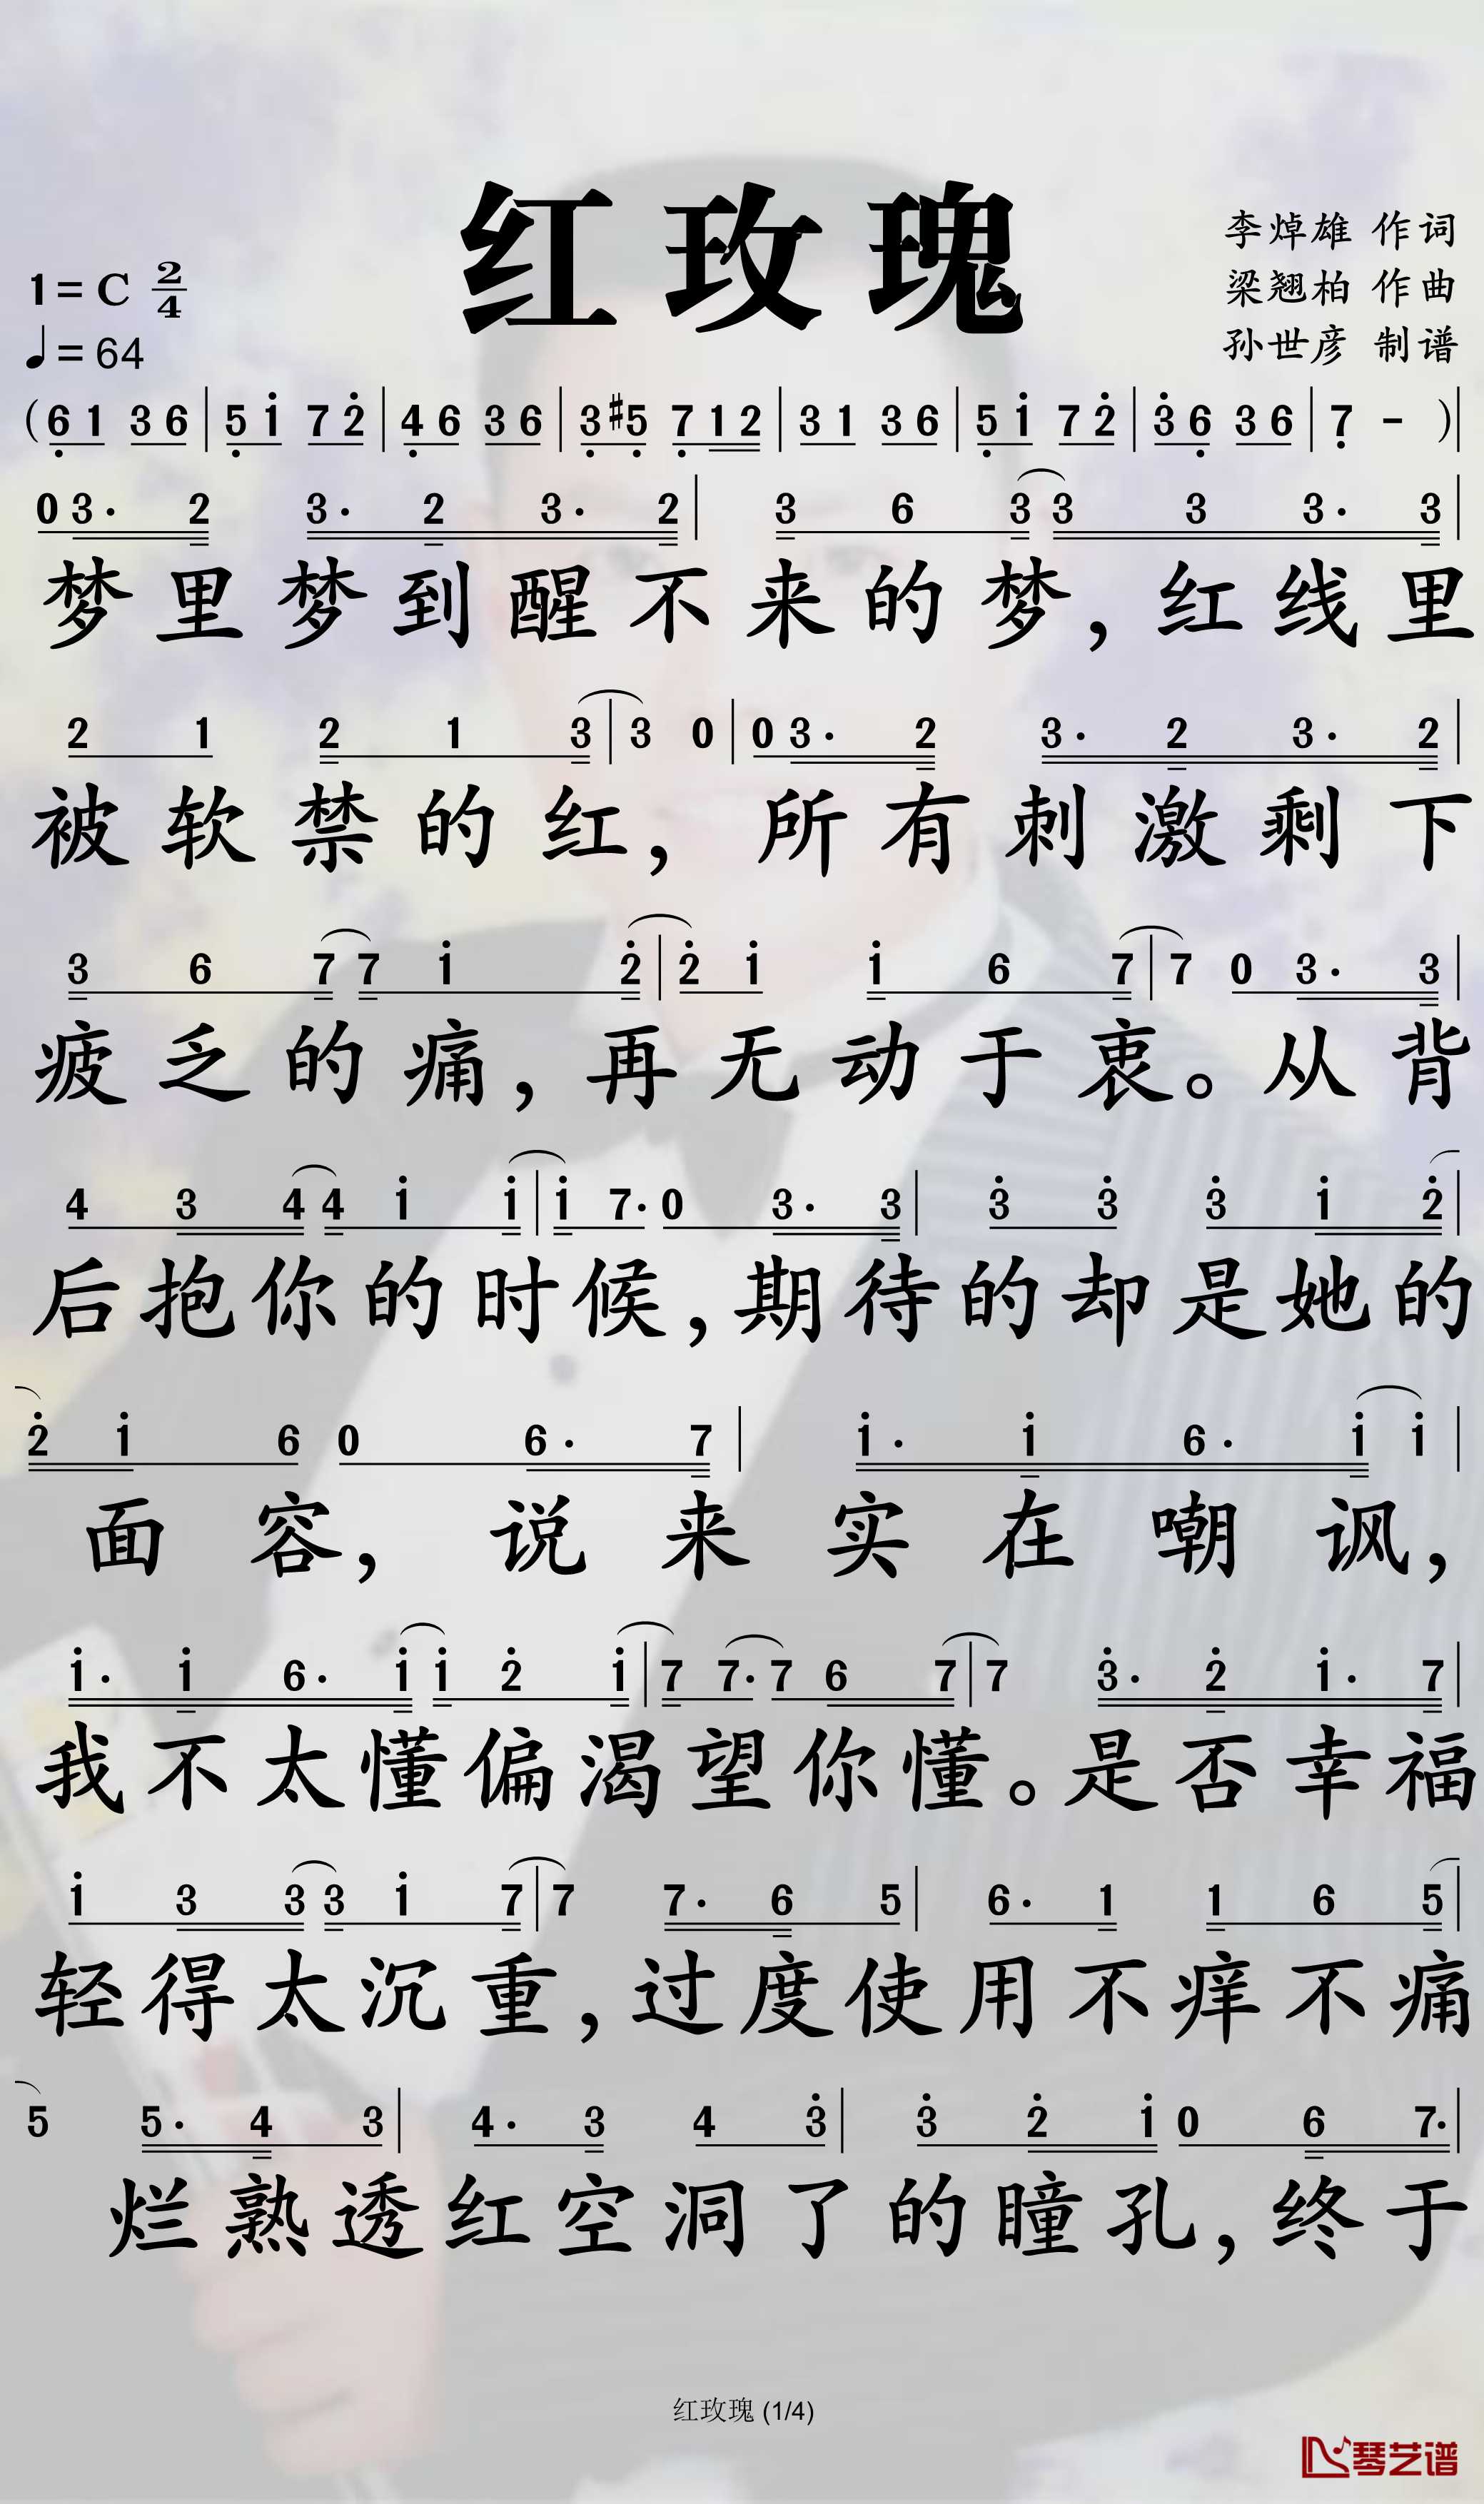 红玫瑰
李焯雄 作词
1=C 2/4
梁翘柏 作曲
♩=64
孙世彦 制谱
(6̣ 1 3 6 | 5̣ 1̇ 7 2̇ | 4̣ 6 3 6 | 3̣ #5̣ 7̣ 1 2 | 3 1 3 6 | 5̣ 1̇ 7 2̇ | 3̇ 6̣ 3 6 | 7̣ - ) |
0 3· 2 3· 2 3· 2 | 3 6 3 3 3 3· 3 |
梦里梦到醒不来的梦，红线里
2 1 2 1 3 | 3 0 | 0 3· 2 3· 2 3· 2 |
被软禁的红，所有刺激剩下
3 6 7 7 1̇ 2̇ | 2̇ 1̇ 1̇ 6 7 | 7 0 3· 3 |
疲乏的痛，再无动于衷。从背
4 3 4 4 1̇ 1̇ | 1̇ 7· 0 3· 3 | 3̇ 3̇ 3̇ 1̇ 2̇ |
后抱你的时候，期待的却是她的
2̇ 1̇ 6 0 6· 7 | 1̇· 1̇ 6· 1̇ 1̇ |
面容，说来实在嘲讽，
1̇· 1̇ 6· 1̇ 1̇ 2̇ 1̇ | 7 7· 7 6 7 | 7 3̇· 2̇ 1̇· 7 |
我不太懂偏渴望你懂。是否幸福
1̇ 3 3 3 1̇ 7 | 7 7· 6 5 | 6· 1 1 6 5 |
轻得太沉重，过度使用不痒不痛
5 5· 4 3 | 4· 3 4 3̇ | 3̇ 2̇ 1̇ 0 6 7· |
烂熟透红空洞了的瞳孔，终于
红玫瑰 (1/4)
琴艺谱